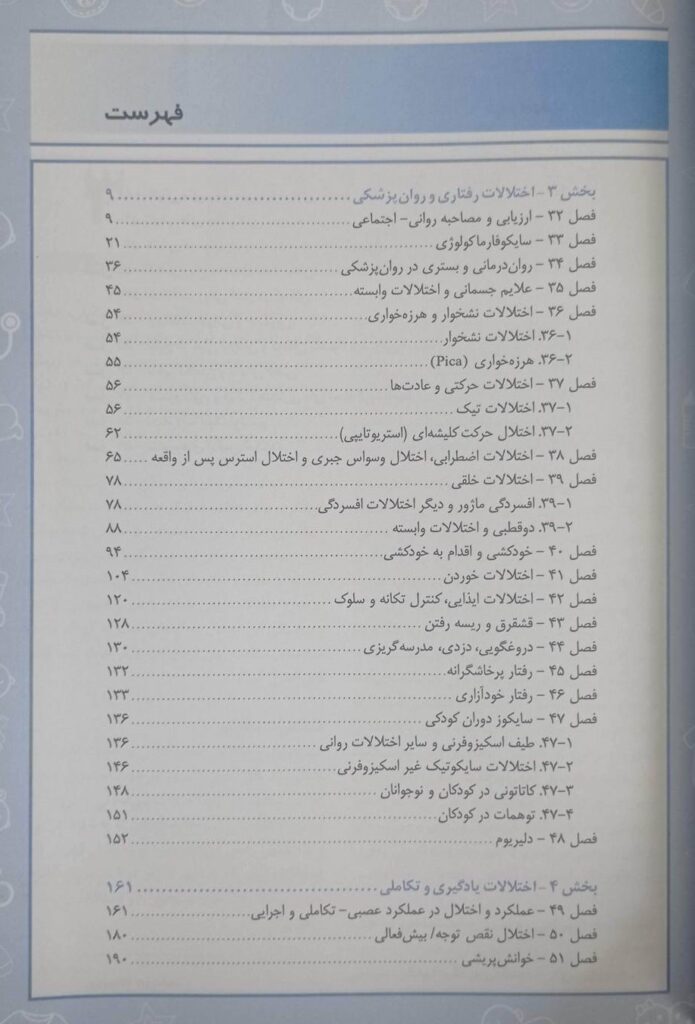 فهرست
بخش ۳ - اختلالات رفتاری و روان‌پزشکی ........ ۹
فصل ۳۲ - ارزیابی و مصاحبه روانی- اجتماعی ........ ۹
فصل ۳۳ - سایکوفارماکولوژی ........ ۲۱
فصل ۳۴ - روان‌درمانی و بستری در روان‌پزشکی ........ ۳۶
فصل ۳۵ - علایم جسمانی و اختلالات وابسته ........ ۴۵
فصل ۳۶ - اختلالات نشخوار و هرزه‌خواری ........ ۵۴
۳۶-۱. اختلالات نشخوار ........ ۵۴
۳۶-۲. هرزه‌خواری (Pica) ........ ۵۵
فصل ۳۷ - اختلالات حرکتی و عادت‌ها ........ ۵۶
۳۷-۱. اختلالات تیک ........ ۵۶
۳۷-۲. اختلال حرکت کلیشه‌ای (استریوتایپی) ........ ۶۲
فصل ۳۸ - اختلالات اضطرابی، اختلال وسواس جبری و اختلال استرس پس از واقعه ..... ۶۵
فصل ۳۹ - اختلالات خلقی ........ ۷۸
۳۹-۱. افسردگی ماژور و دیگر اختلالات افسردگی ........ ۷۸
۳۹-۲. دوقطبی و اختلالات وابسته ........ ۸۸
فصل ۴۰ - خودکشی و اقدام به خودکشی ........ ۹۴
فصل ۴۱ - اختلالات خوردن ........ ۱۰۴
فصل ۴۲ - اختلالات ایذایی، کنترل تکانه و سلوک ........ ۱۲۰
فصل ۴۳ - قشقرق و ریسه رفتن ........ ۱۲۸
فصل ۴۴ - دروغگویی، دزدی، مدرسه‌گریزی ........ ۱۳۰
فصل ۴۵ - رفتار پرخاشگرانه ........ ۱۳۲
فصل ۴۶ - رفتار خودآزاری ........ ۱۳۳
فصل ۴۷ - سایکوز دوران کودکی ........ ۱۳۶
۴۷-۱. طیف اسکیزوفرنی و سایر اختلالات روانی ........ ۱۳۶
۴۷-۲. اختلالات سایکوتیک غیر اسکیزوفرنی ........ ۱۴۶
۴۷-۳. کاتاتونی در کودکان و نوجوانان ........ ۱۴۸
۴۷-۴. توهمات در کودکان ........ ۱۵۱
فصل ۴۸ - دلیریوم ........ ۱۵۲
بخش ۴ - اختلالات یادگیری و تکاملی ........ ۱۶۱
فصل ۴۹ - عملکرد و اختلال در عملکرد عصبی- تکاملی و اجرایی ........ ۱۶۱
فصل ۵۰ - اختلال نقص توجه/ بیش‌فعالی ........ ۱۸۰
فصل ۵۱ - خوانش‌پریشی ........ ۱۹۰